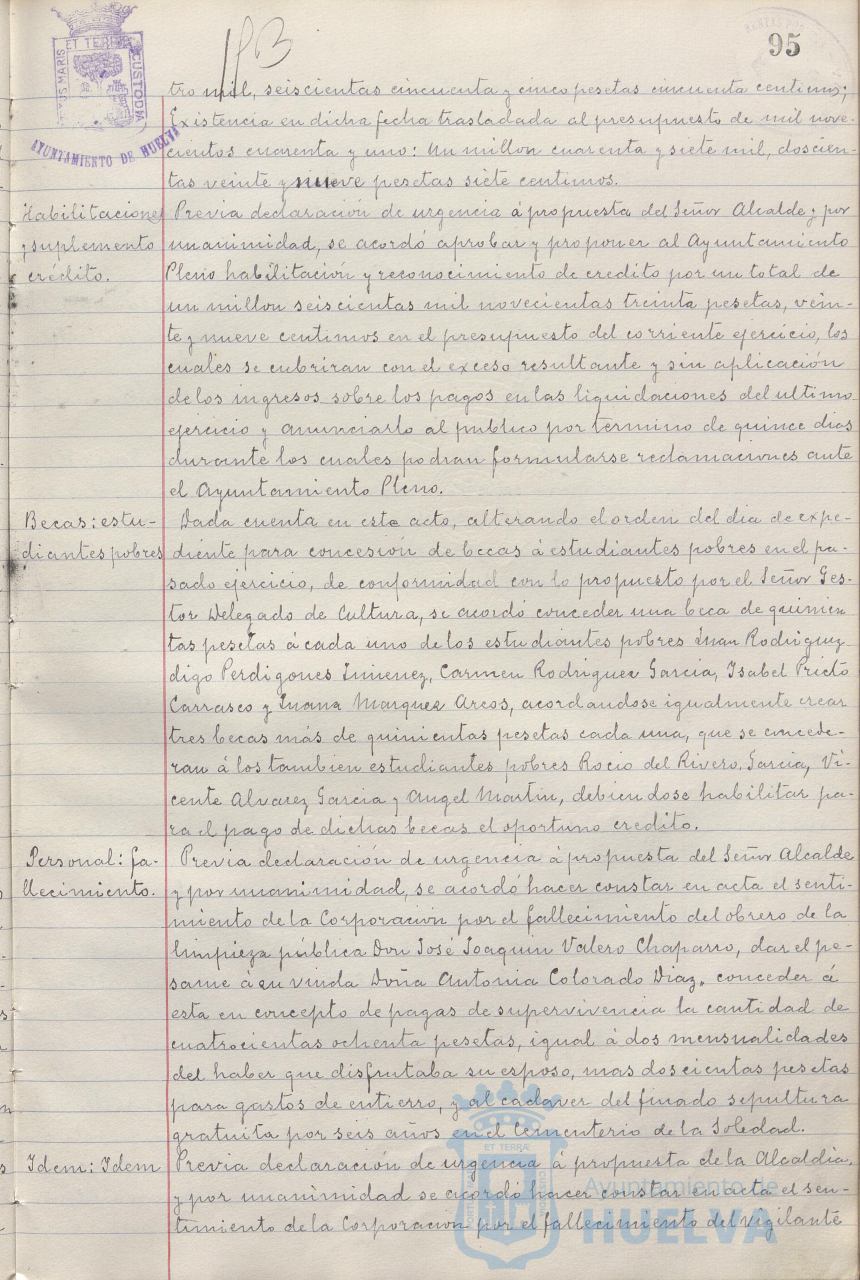 193
95
ET TERRAE
CUSTODIA
AYUNTAMIENTO DE HUELVA
tro mil, seiscientas cincuenta y cinco pesetas cincuenta centimos;
Existencia en dicha fecha trasladada al presupuesto de mil nove-
cientos cuarenta y uno: Un millon cuarenta y siete mil, doscien-
tas veinte y nueve pesetas siete centimos.
Habilitaciones
y suplemento
crédito.
Previa declaración de urgencia á propuesta del Señor Alcalde y por
unanimidad, se acordó aprobar y proponer al Ayuntamiento
Pleno habilitación y reconocimiento de credito por un total de
un millon seiscientas mil novecientas treinta pesetas, vein-
te y nueve centimos en el presupuesto del corriente ejercicio, los
cuales se cubriran con el exceso resultante y sin aplicación
de los ingresos sobre los pagos en las liquidaciones del ultimo
ejercicio y anunciarlo al publico por término de quince dias
durante los cuales podran formularse reclamaciones ante
el Ayuntamiento Pleno.
Becas: estu-
diantes pobres
Dada cuenta en este acto, alterando el orden del dia de expe-
diente para concesión de becas á estudiantes pobres en el pa-
sado ejercicio, de conformidad con lo propuesto por el Señor Ges-
tor Delegado de Cultura, se acordó conceder una beca de quinien
tas pesetas á cada uno de los estudiantes pobres Juan Rodriguez
digo Perdigones Jimenez, Carmen Rodriguez Garcia, Isabel Prieto
Carrasco y Juana Marquez Arcos, acordandose igualmente crear
tres becas más de quinientas pesetas cada una, que se concede-
ran á los tambien estudiantes pobres Rocio del Rivero Garcia, Vi-
cente Alvarez Garcia y Angel Martin, debiendose habilitar pa-
ra el pago de dichas becas el oportuno credito.
Personal: fa-
llecimiento.
Previa declaración de urgencia á propuesta del Señor Alcalde
y por unanimidad, se acordó hacer constar en acta el senti-
miento de la Corporación por el fallecimiento del obrero de la
limpieza pública Don José Joaquin Valero Chaparro, dar el pe-
same á su viuda Doña Antonia Colorado Diaz, conceder á
esta en concepto de pagas de supervivencia la cantidad de
cuatrocientas ochenta pesetas, igual á dos mensualidades
del haber que disfrutaba su esposo, mas doscientas pesetas
para gastos de entierro, y al cadaver del finado sepultura
gratuita por seis años en el Cementerio de la Soledad.
Idem: Idem
Previa declaración de urgencia á propuesta de la Alcaldia,
y por unanimidad se acordó hacer constar en acta el sen-
timiento de la Corporación por el fallecimiento del vigilante
ET TERRÆ
Ayuntamiento de
HUELVA